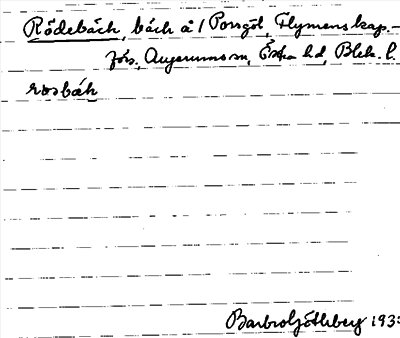 Rödebäck, bäck å / Pongöl, Flymens kap.-
förs, Augerums sn, Östra hd, Blek. l.
rœsbæk
Barbro Götlberg 193